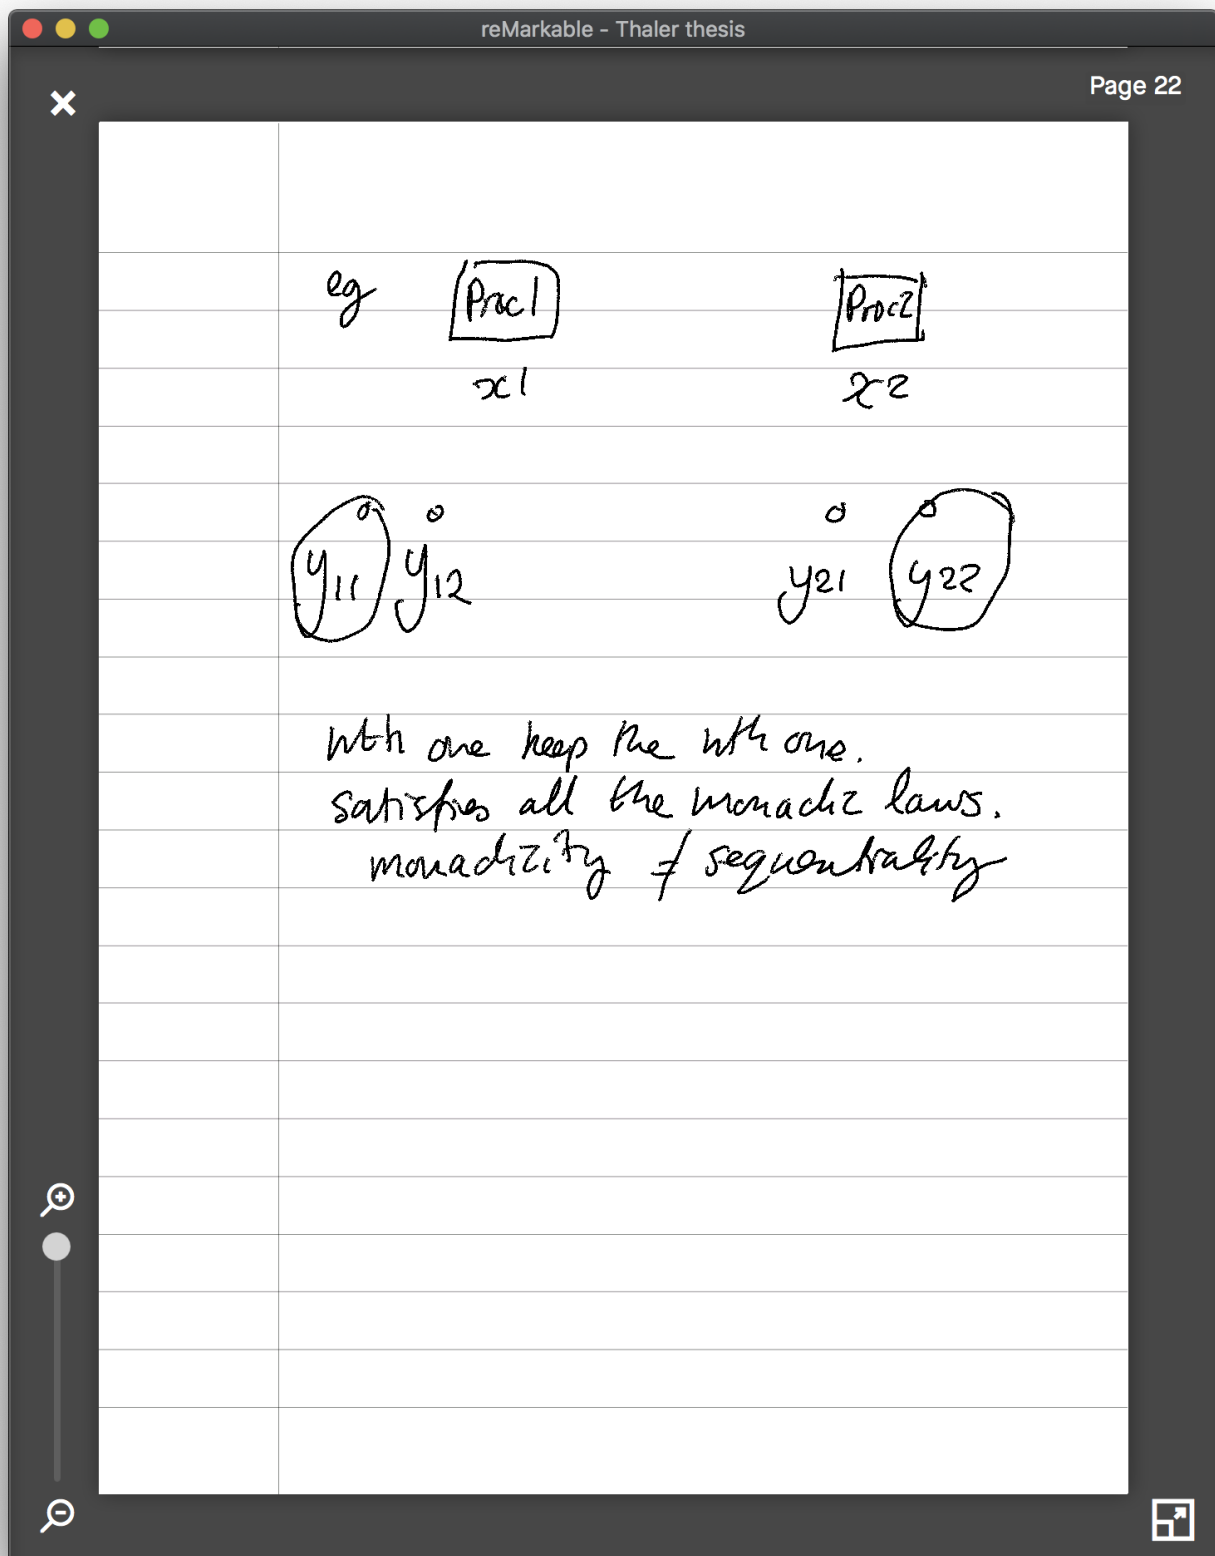 reMarkable - Thaler thesis
Page 22
eg Proc1 Proc2
x1 x2
y11 y12 y21 y22
nth one keep the nth one.
satisfies all the monadic laws.
monadicity ≠ sequentiality